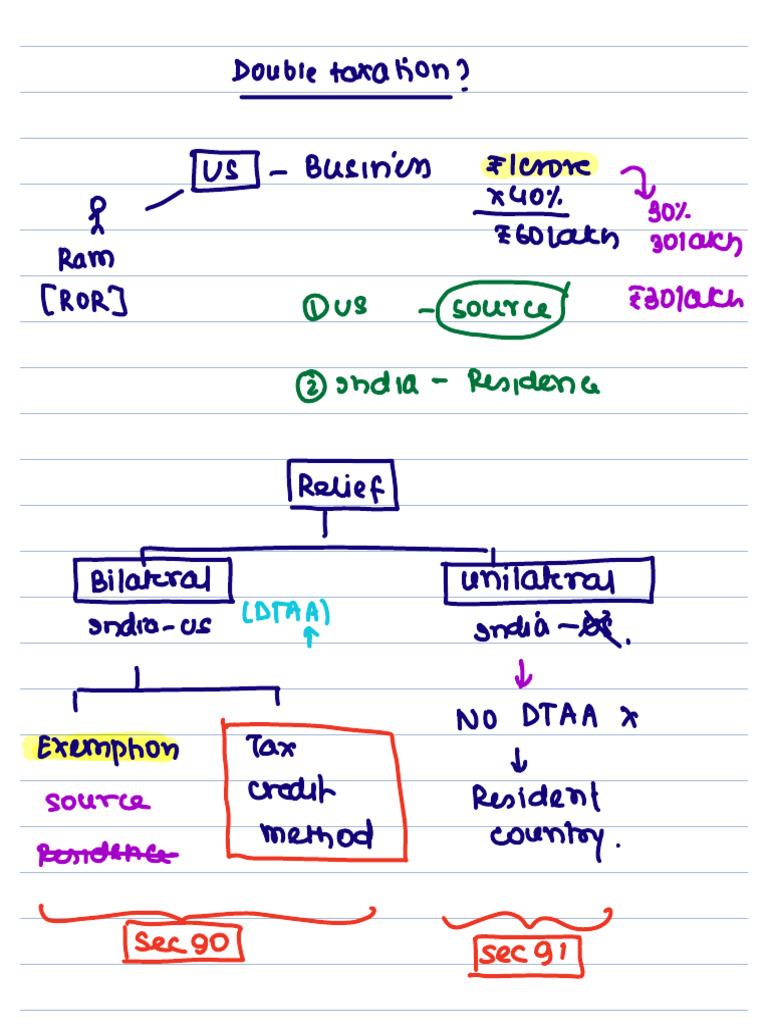 Double taxation?
US - Business ₹1crore
x40%
₹60lakh
30%
30lakh
₹30lakh
Ram
[ROR]
① US - source
② India - Residence
Relief
Bilateral
Unilateral
India-US (DTAA)
India -
NO DTAA x
Exemption
Tax
credit
method
source
Residence
Resident
country.
Sec 90
Sec 91